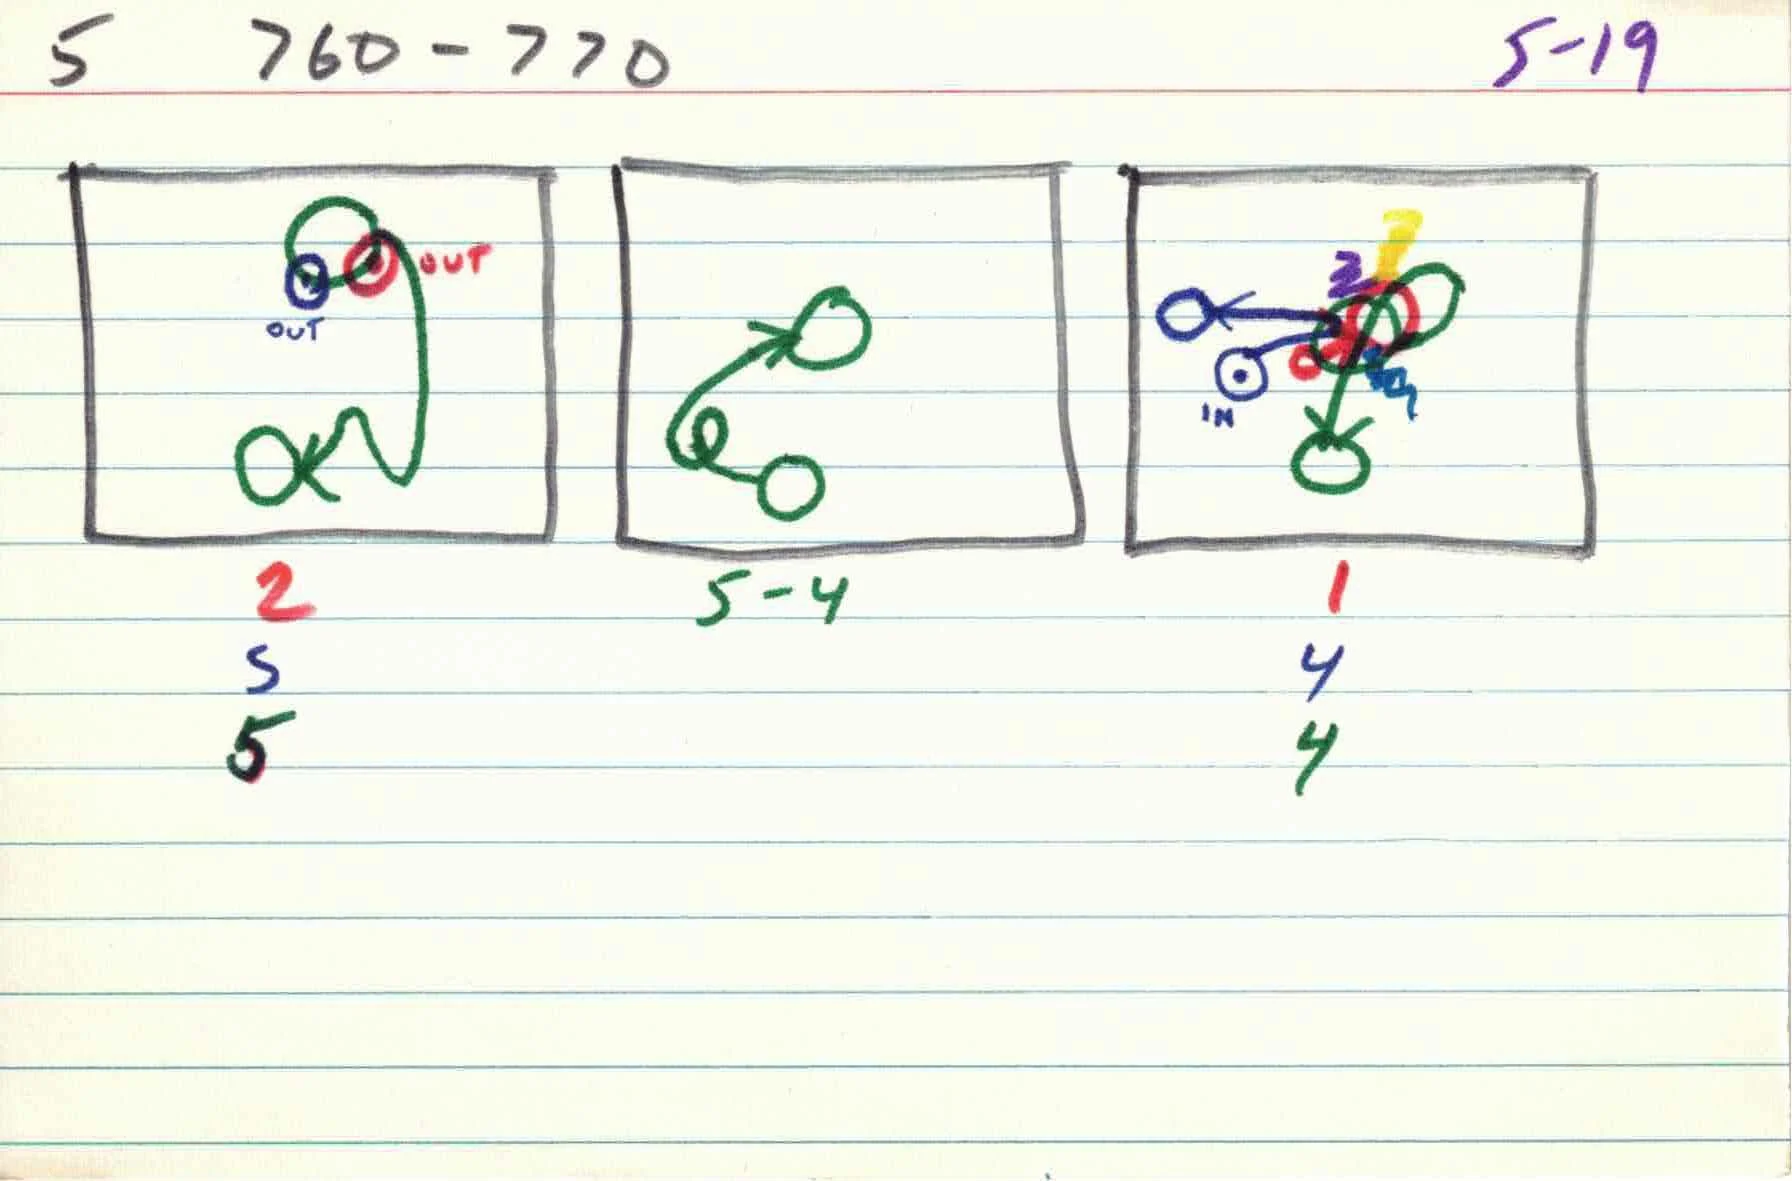 5 760-770 5-19
OUT
OUT
IN
2 5-4 1
5 4
5 4